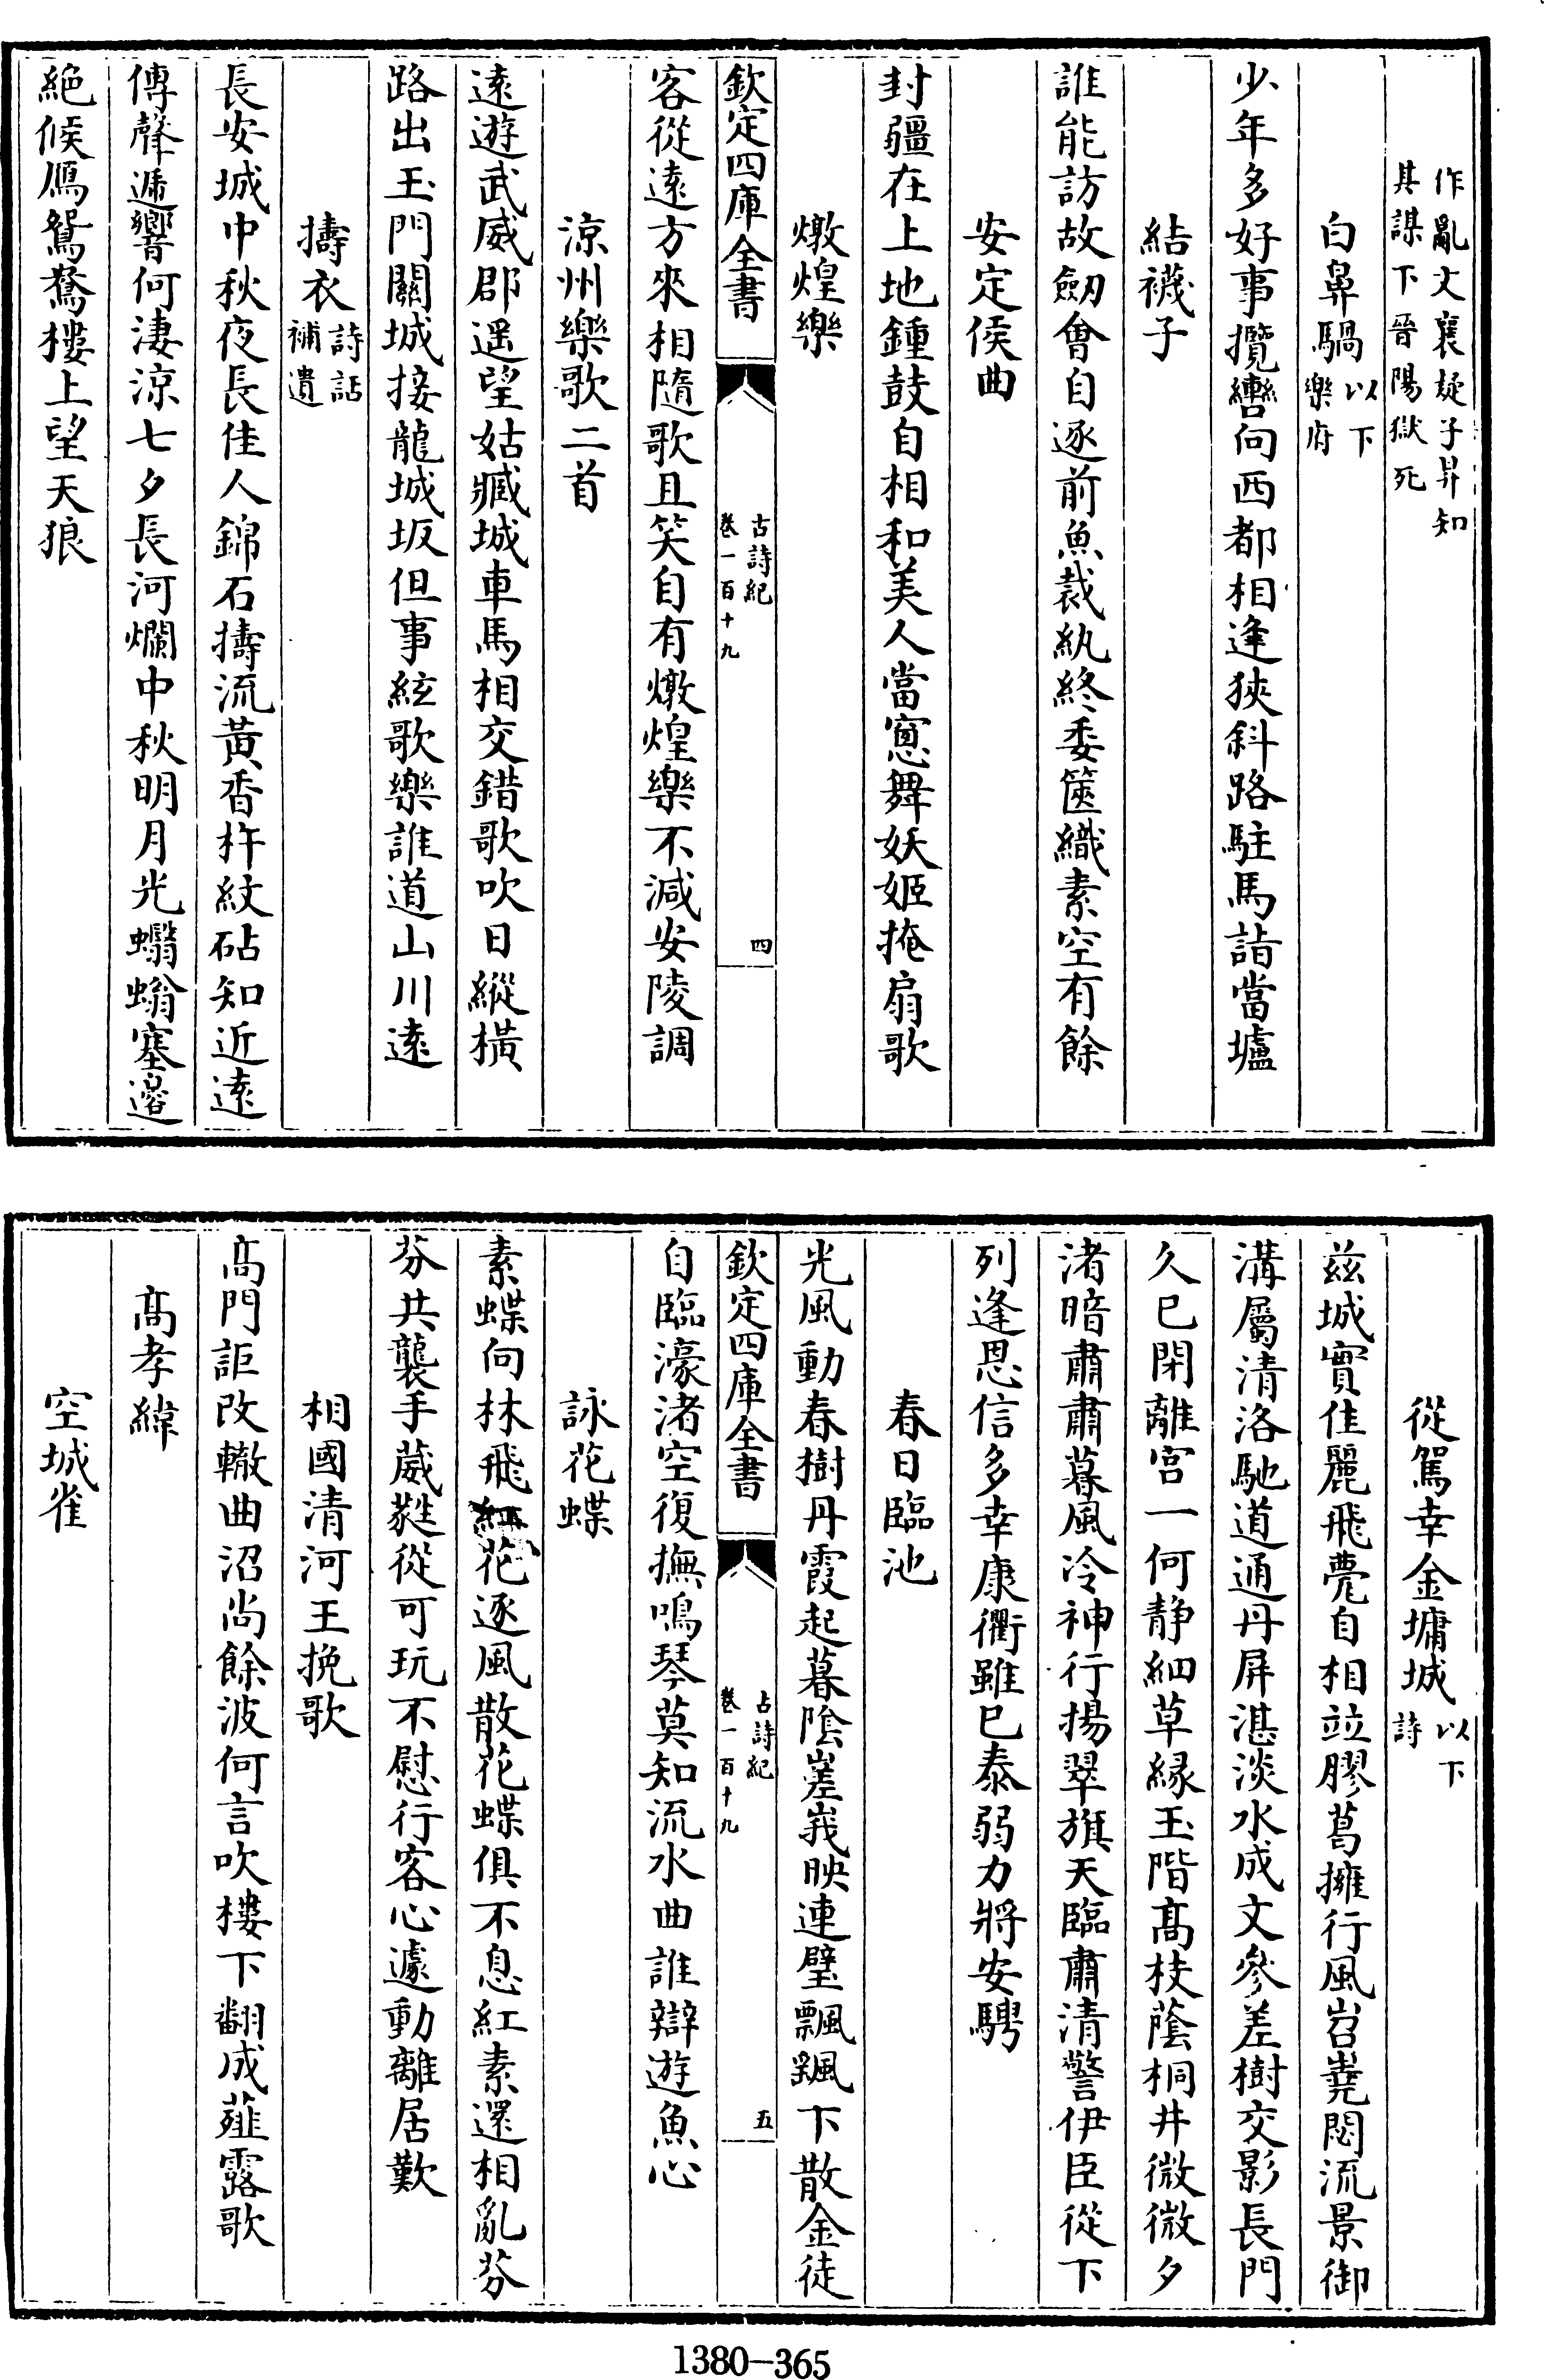 作亂文襄疑子昇知
其謀下晉陽獄死
白鼻騧以下樂府
少年多好事攬轡向西都相逢狹斜路駐馬詣當壚
結襪子
誰能訪故劒會自逐前魚裁紈終委篋織素空有餘
安定侯曲
封疆在上地鍾鼓自相和美人當窻舞妖姬掩扇歌
燉煌樂
客從遠方來相隨歌且笑自有燉煌樂不減安陵調
涼州樂歌二首
遠遊武威郡遥望姑臧城車馬相交錯歌吹日縱橫
路出玉門關城接龍城坂但事絃歌樂誰道山川遠
擣衣詩話補遺
長安城中秋夜長佳人錦石擣流黃香杵紋砧知近遠
傳聲遞響何淒涼七夕長河爛中秋明月光蠮螉塞邉
絶候鴈鴛鴦樓上望天狼
欽定四庫全書
古詩紀
卷一百十九
四
從駕幸金墉城以下詩
兹城實佳麗飛甍自相竝膠葛擁行風岧嶤閟流景御
溝屬清洛馳道通丹屏湛淡水成文參差樹交影長門
久已閉離宫一何静細草緑玉階髙枝蔭桐井微微夕
渚暗肅肅暮風冷神行揚翠旗天臨肅清警伊臣從下
列逢恩信多幸康衢雖已泰弱力將安騁
春日臨池
光風動春樹丹霞起暮陰嵳峩映連璧飄颻下散金徒
自臨濠渚空復撫鳴琴莫知流水曲誰辯遊魚心
詠花蝶
素蝶向林飛紅花逐風散花蝶俱不息紅素還相亂芬
芬共襲手葳蕤從可玩不慰行客心遽動離居歎
相國清河王挽歌
髙門詎改轍曲沼尚餘波何言吹樓下翻成薤露歌
髙孝緯
空城雀
欽定四庫全書
古詩紀
卷一百十九
五
1380-365